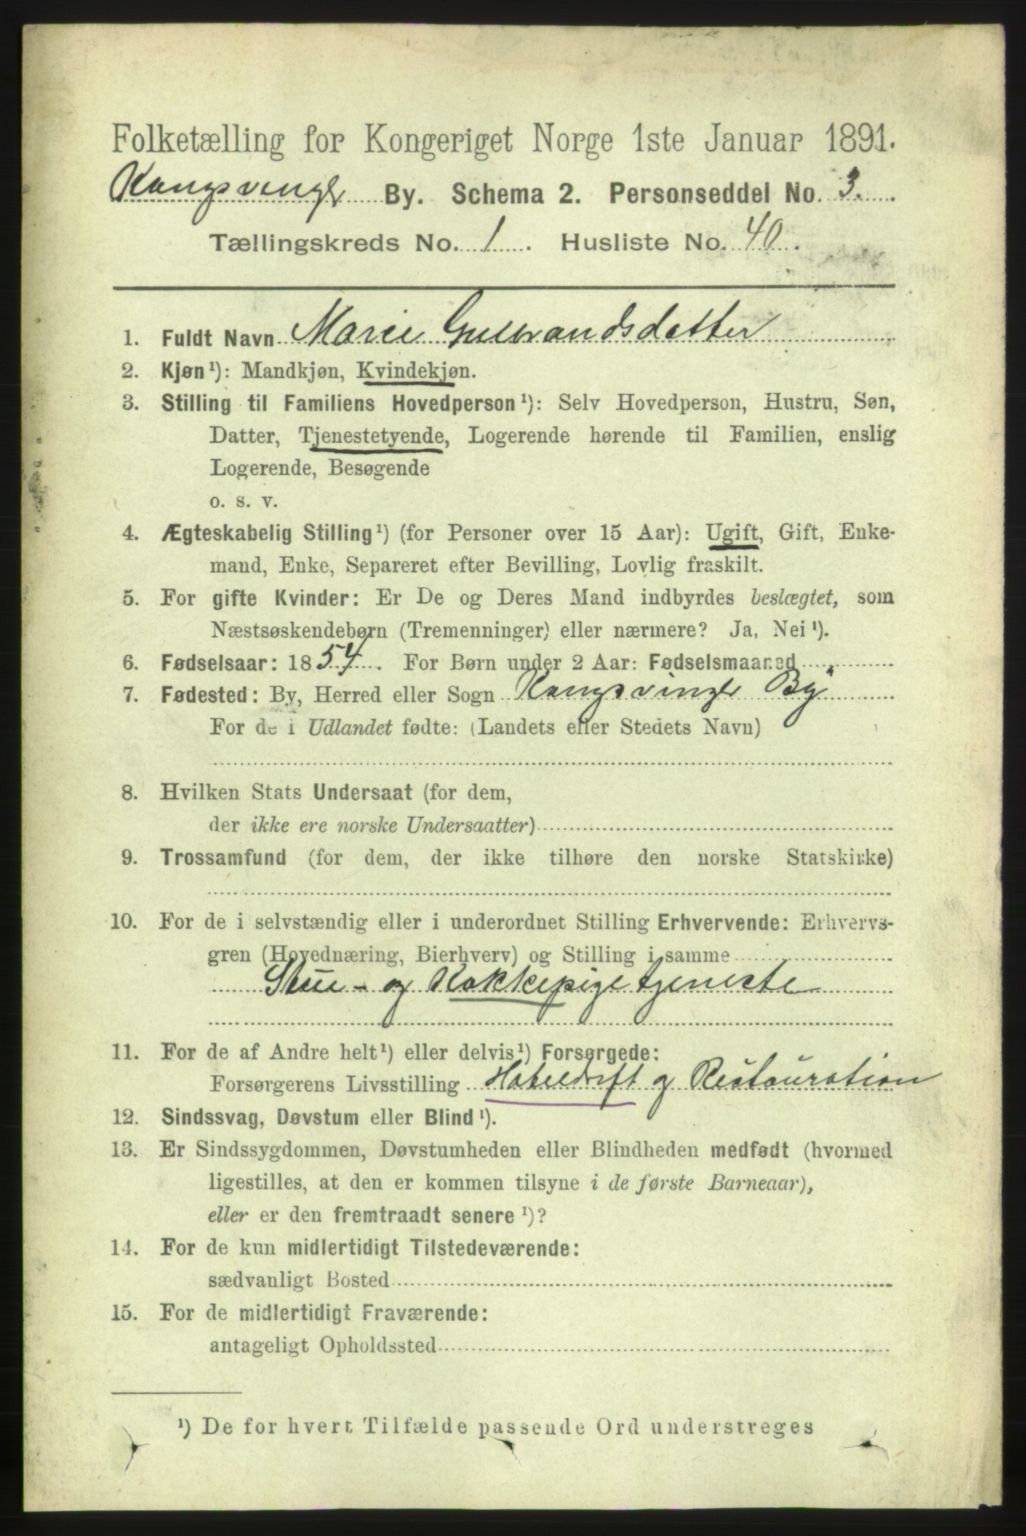 Folketælling for Kongeriget Norge 1ste Januar 1891.
Kongsvinger By. Schema 2. Personseddel No. 3.
Tællingskreds No. 1. Husliste No. 40.
1. Fuldt Navn Marie Gulbrandsdatter
2. Kjøn¹): Mandkjøn, Kvindekjøn.
3. Stilling til Familiens Hovedperson¹): Selv Hovedperson, Hustru, Søn,
Datter, Tjenestetyende, Logerende hørende til Familien, enslig
Logerende, Besøgende
o. s. v.
4. Ægteskabelig Stilling¹) (for Personer over 15 Aar): Ugift, Gift, Enke-
mand, Enke, Separeret efter Bevilling, Lovlig fraskilt.
5. For gifte Kvinder: Er De og Deres Mand indbyrdes beslægtet, som
Næstsøskendebørn (Tremenninger) eller nærmere? Ja, Nei¹).
6. Fødselsaar: 1854. For Børn under 2 Aar: Fødselsmaaned
7. Fødested: By, Herred eller Sogn Kongsvinger By
For de i Udlandet fødte: (Landets eller Stedets Navn)
8. Hvilken Stats Undersaat (for dem,
der ikke ere norske Undersaatter)
9. Trossamfund (for dem, der ikke tilhøre den norske Statskirke)
10. For de i selvstændig eller i underordnet Stilling Erhvervende: Erhvervs-
gren (Hovednæring, Bierhverv) og Stilling i samme
Stue- og Kokkepige tjeneste
11. For de af Andre helt¹) eller delvis¹) Forsørgede:
Forsørgerens Livsstilling Hoteldrift og Restauration
12. Sindssvag, Døvstum eller Blind¹).
13. Er Sindssygdommen, Døvstumheden eller Blindheden medfødt (hvormed
ligestilles, at den er kommen tilsyne i de første Barneaar),
eller er den fremtraadt senere¹)?
14. For de kun midlertidigt Tilstedeværende:
sædvanligt Bosted
15. For de midlertidigt Fraværende:
antageligt Opholdssted
¹) De for hvert Tilfælde passende Ord understreges